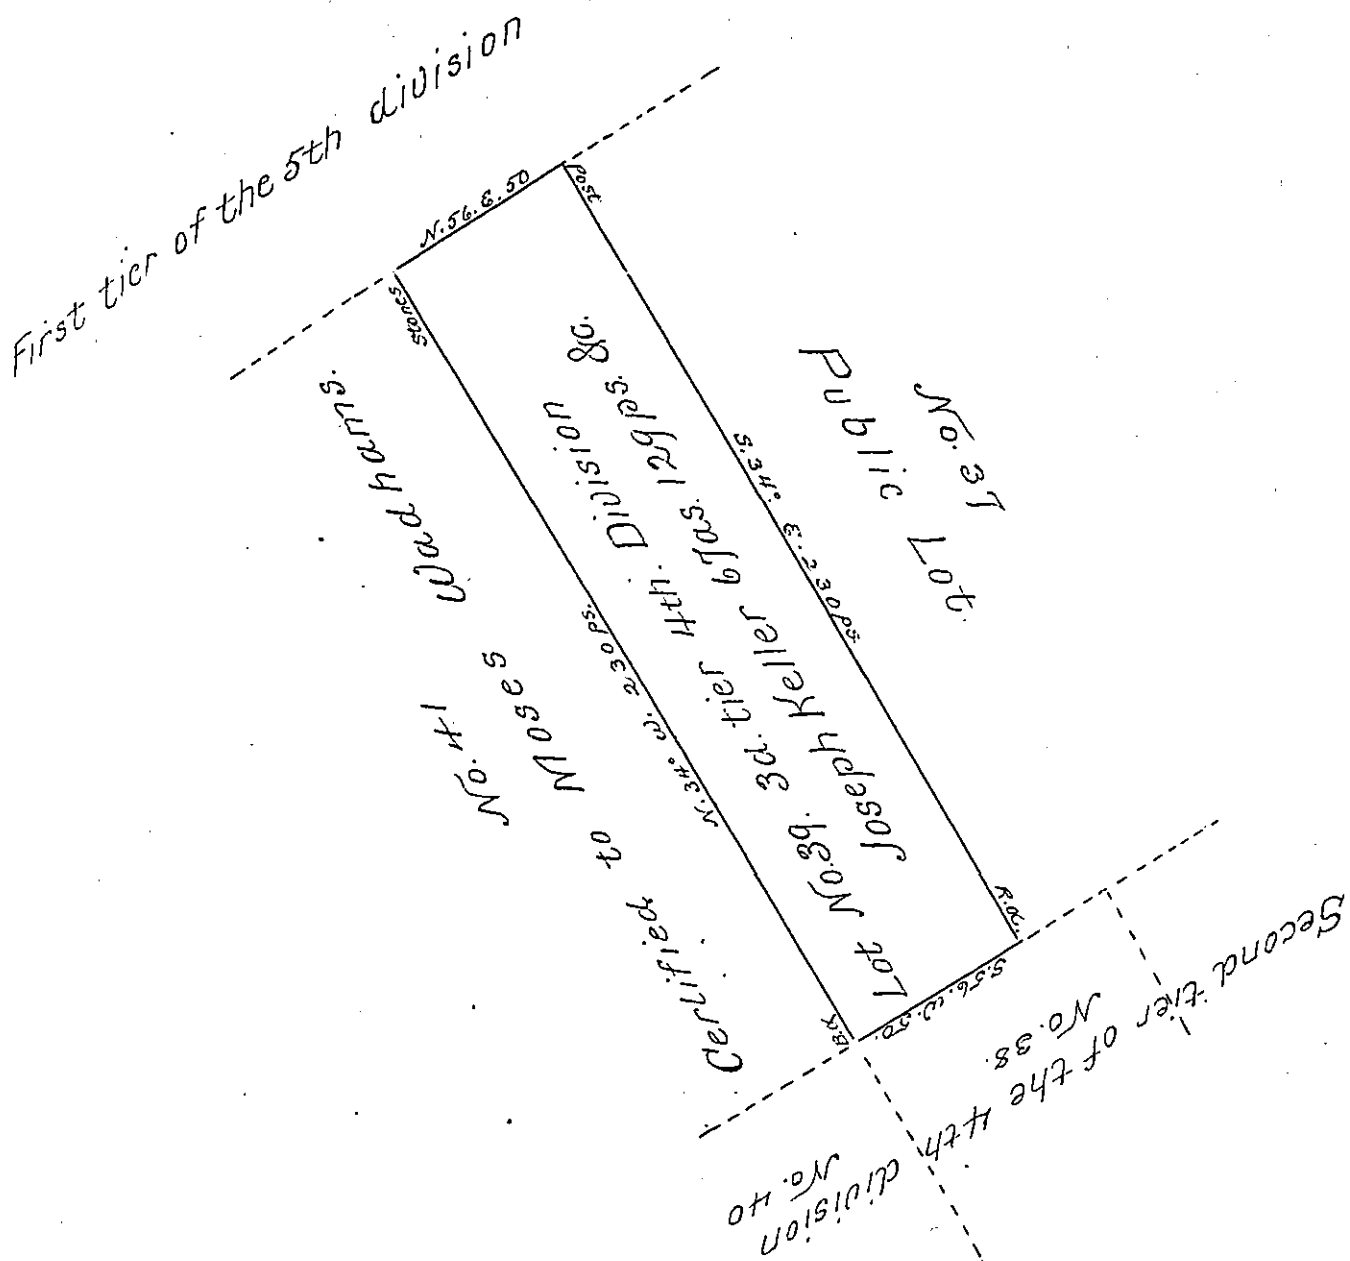 First tier of the 5th division
N. 56. E. 50
Post
Stones
No. 41
Certified to Moses Wadhams.
N. 34° W. 230 ps.
Lot No. 39. 3d. tier 4th. Division
Joseph Keller 67as. 129ps. &c.
S. 34°. E. 230 ps
Public Lot
No. 37
R.O.
S. 56. W. 50.
B.O.
No. 38.
Second tier of the 4th division
No. 40